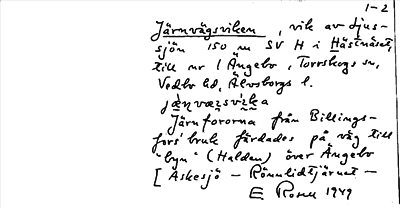 1-2
Järnvägsviken, vik av Ljus-
sjön 150 m SV H i Hästnäset,
till nr 1 Ängebo, Torrskogs sn,
Vedbo hd, Älvsborgs l.
jæ̀nvæzsvìka
Järnfororna från Billings-
fors bruk färdades på väg till
"byn" (Halden) över Ängebo
[Askesjö – Rönnlidtjärnet –
E Rosell 1949